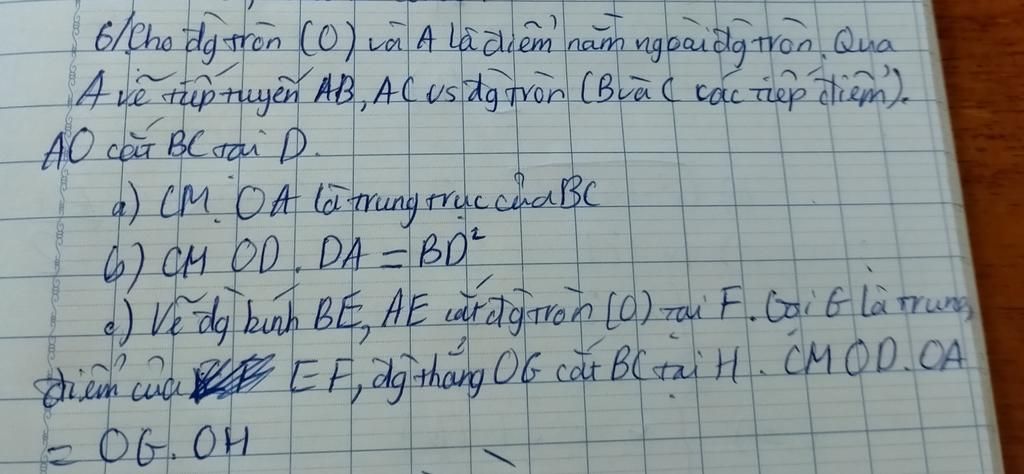 6/Cho đg tròn (O) và A là điểm nằm ngoài đg tròn. Qua
A vẽ tiếp tuyến AB, AC vs đg tròn (B và C các tiếp điểm).
AO cắt BC tại D.
a) CM. OA là trung trực của BC
b) CM OD. DA = BD²
c) Vẽ đg kính BE, AE cắt đg tròn (O) tại F. Gọi G là trung
điểm của EF, đg thẳng OG cắt BC tại H. CM OD.OA
= OG.OH